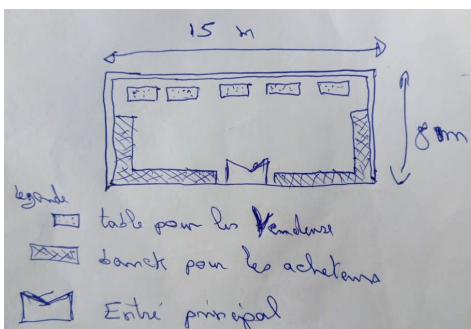 15 m
8 m
legende
table pour les Vendeuse
banck pour les acheteurs
Entré principal